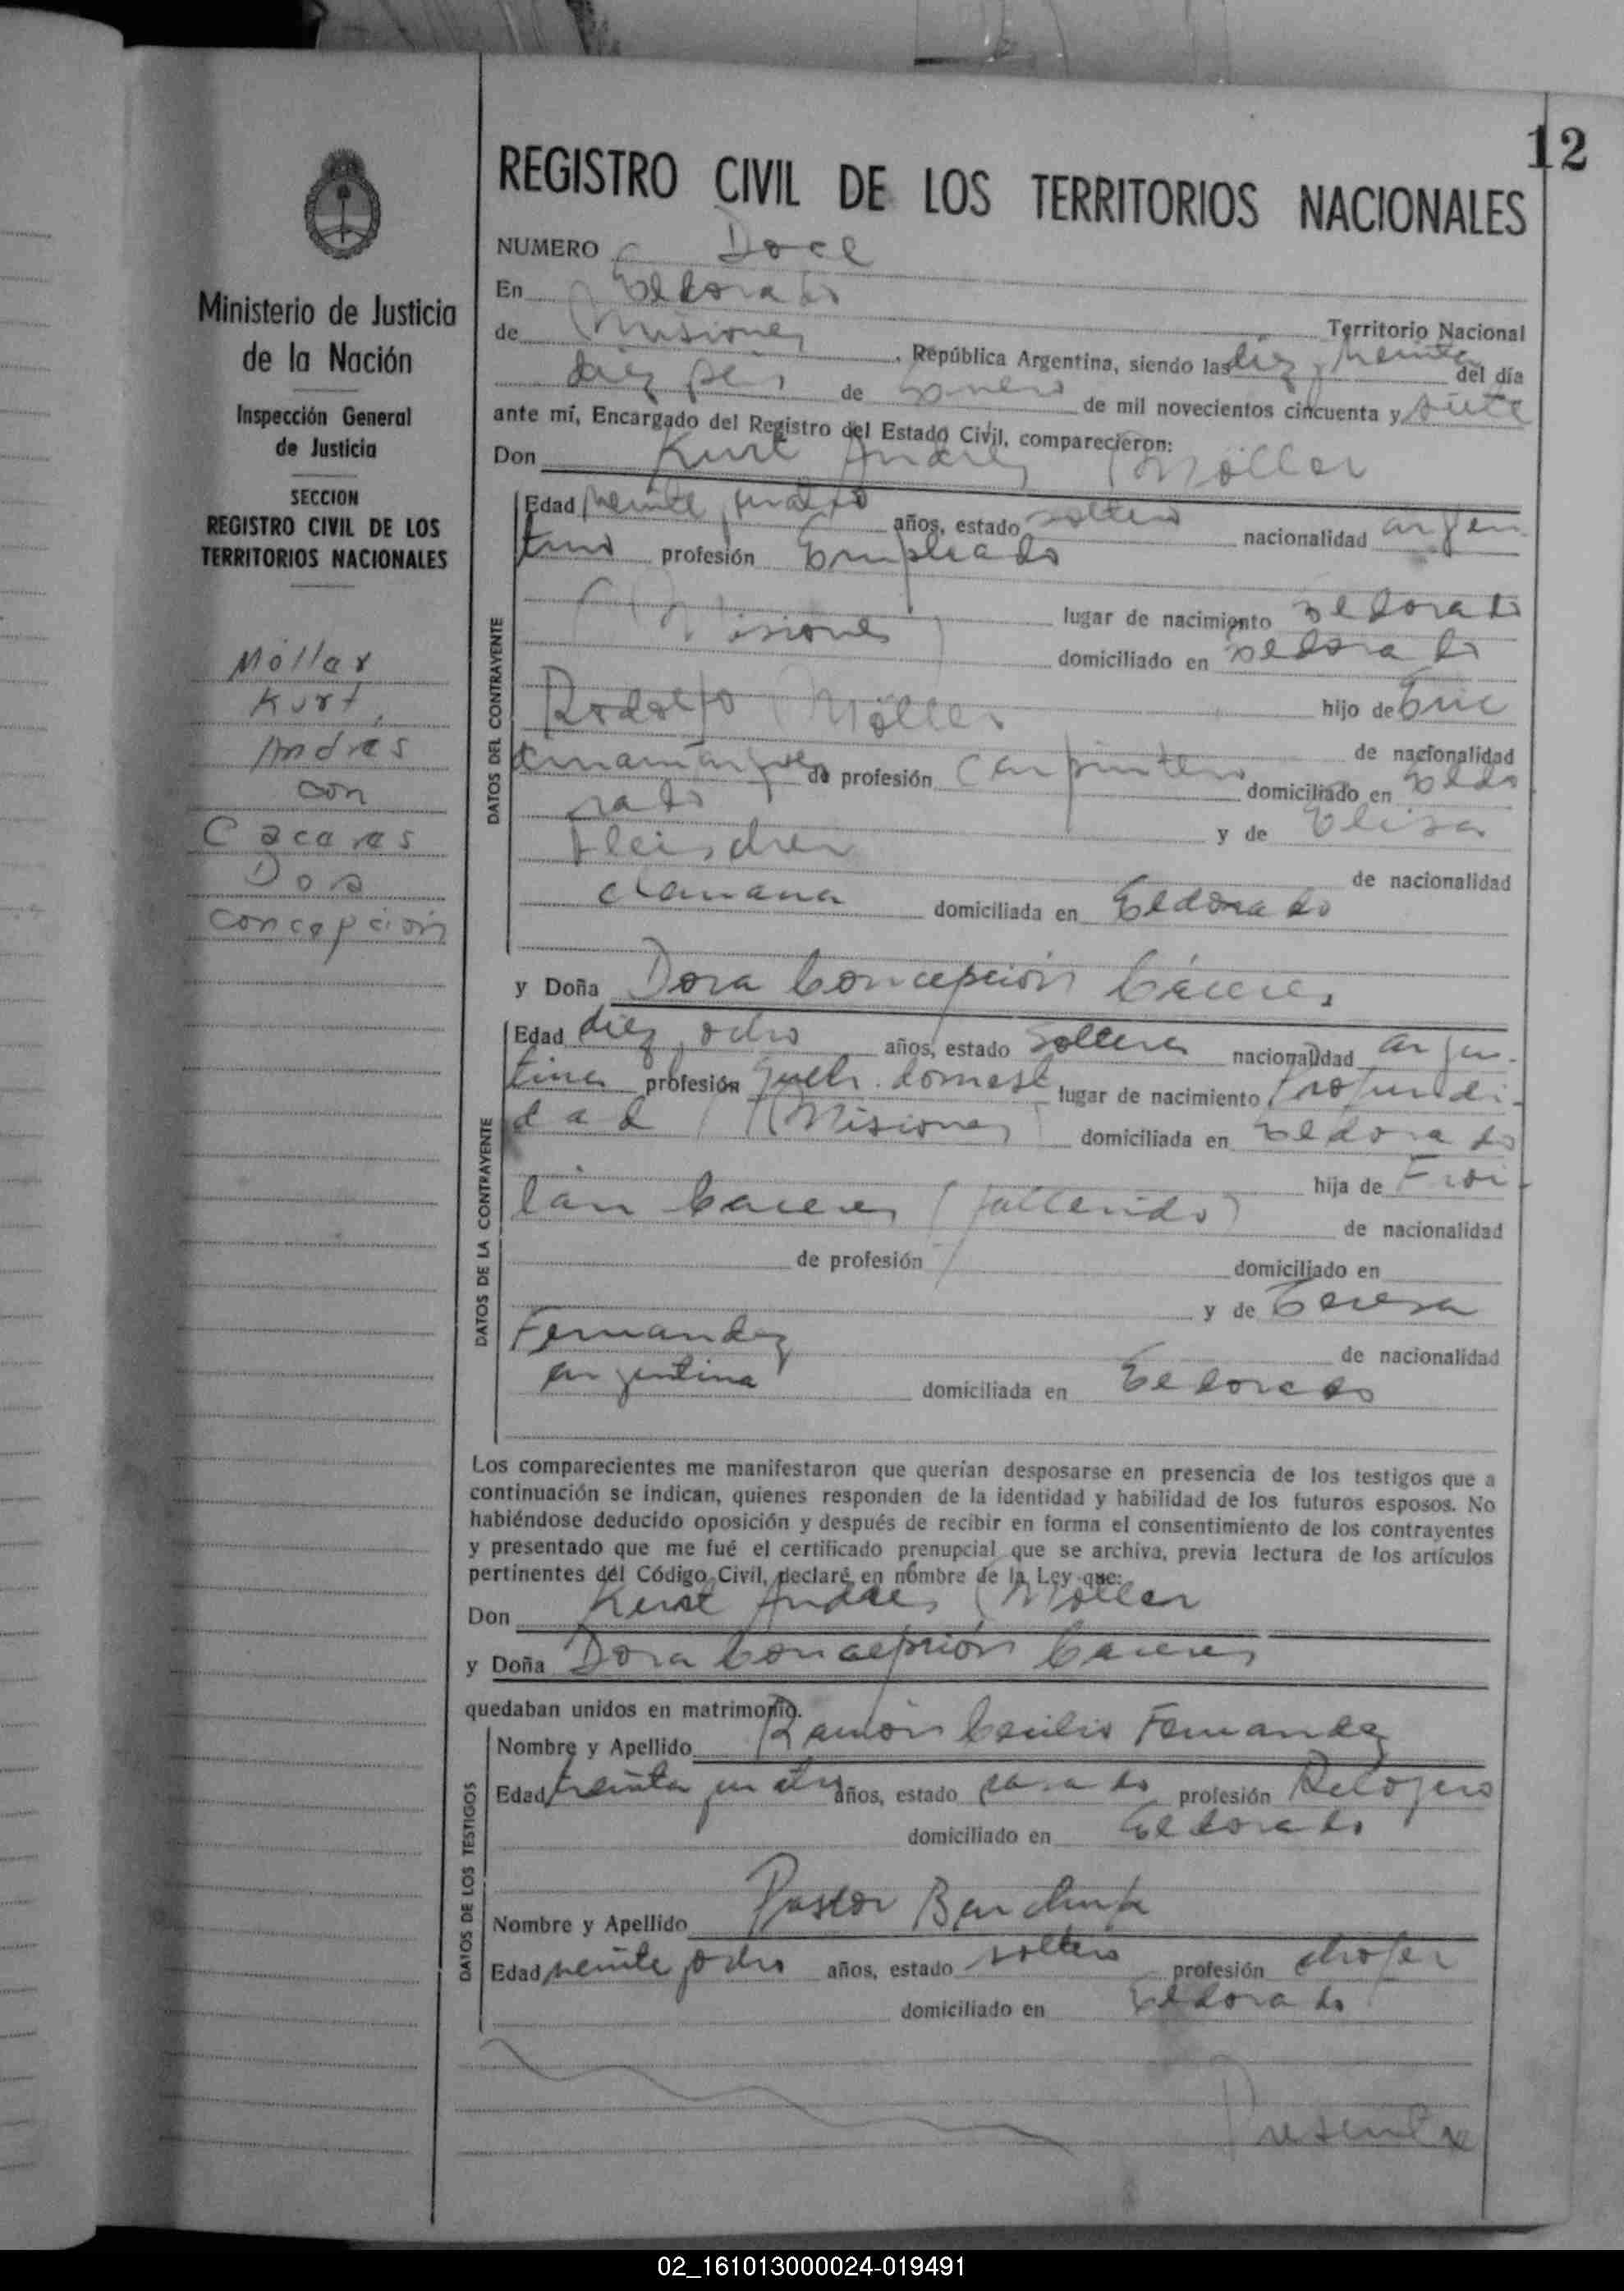 12
REGISTRO CIVIL DE LOS TERRITORIOS NACIONALES
NUMERO Doce
En Eldorado
Territorio Nacional
de Misiones, República Argentina, siendo las diez y treinta del día
diez seis de Enero de mil novecientos cincuenta y siete
ante mí, Encargado del Registro del Estado Civil, comparecieron:
Don Kurt Andres Möller
Edad veinte cuatro años, estado soltero nacionalidad argen
tino profesión Empleado
lugar de nacimiento Eldorado
(Misiones) domiciliado en Eldorado
hijo de Eric
Rodolfo Möller
de nacionalidad
de profesión Carpintero domiciliado en Eldo
rado
y de Elisa
Fleischer
de nacionalidad
alemana domiciliada en Eldorado
y Doña Dora Concepción Cáceres
Edad diez ocho años, estado Soltera nacionalidad argen-
tina profesión Queh. domest lugar de nacimiento Profundi-
dad (Misiones) domiciliada en Eldorado
hija de Froi-
lán Caceres (fallecido)
de nacionalidad
de profesión domiciliado en
y de Teresa
Fernandez
de nacionalidad
argentina domiciliada en Eldorado
Los comparecientes me manifestaron que querían desposarse en presencia de los testigos que a
continuación se indican, quienes responden de la identidad y habilidad de los futuros esposos. No
habiéndose deducido oposición y después de recibir en forma el consentimiento de los contrayentes
y presentado que me fué el certificado prenupcial que se archiva, previa lectura de los artículos
pertinentes del Código Civil, declaré en nombre de la Ley que:
Don Kurt Andres Möller
y Doña Dora Concepción Caceres
quedaban unidos en matrimonio.
Nombre y Apellido Ramón Cecilio Fernandez
Edad treinta cuatro años, estado casado profesión Relojero
domiciliado en Eldorado
Nombre y Apellido Pastor
Edad veinte ocho años, estado soltero profesión chofer
domiciliado en Eldorado
Presente
Ministerio de Justicia
de la Nación
Inspección General
de Justicia
SECCION
REGISTRO CIVIL DE LOS
TERRITORIOS NACIONALES
Möller
Kurt,
Andres
con
Caceres
Concepción
DATOS DEL CONTRAYENTE
DATOS DE LA CONTRAYENTE
DATOS DE LOS TESTIGOS
02_161013000024-019491